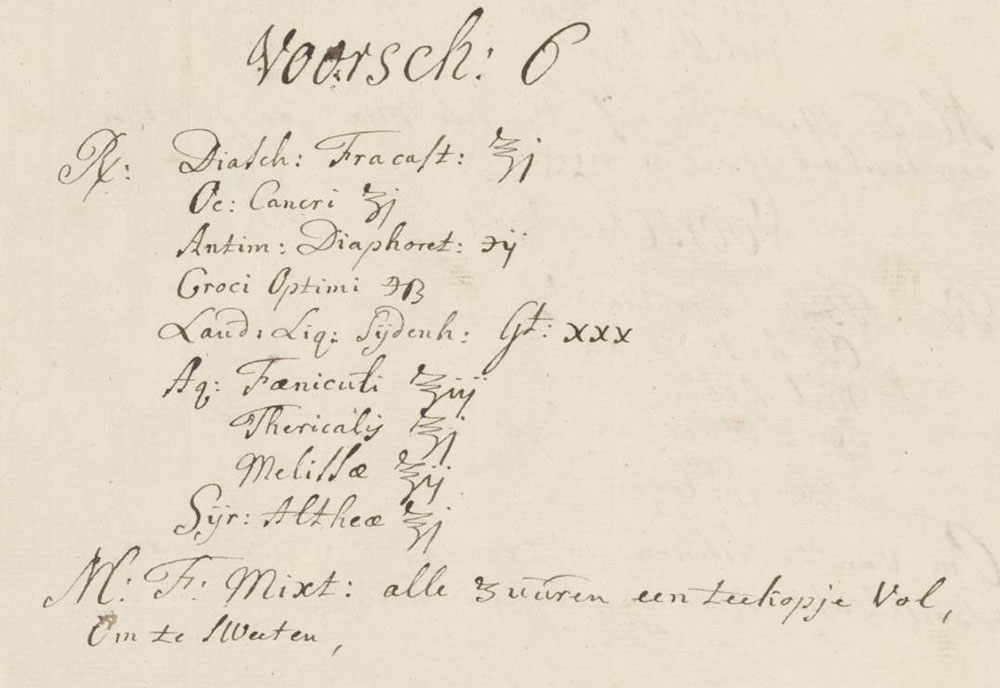 Voorsch: 6
℞: Diasch: Fracast: ℥j
Oc: Cancri ʒj
Antim: Diaphoret: ℈ij
Croci Optimi ℈ß
Laud: Liq: Sÿdenh: Gt: xxx
Aq: Fæniculi ℥iij
Thericalis ℥j
Melissæ ℥ij
Sÿr: Altheæ ℥j
M: F: Mixt: alle 3 uuren een teekopje Vol,
Om te Sweeten,